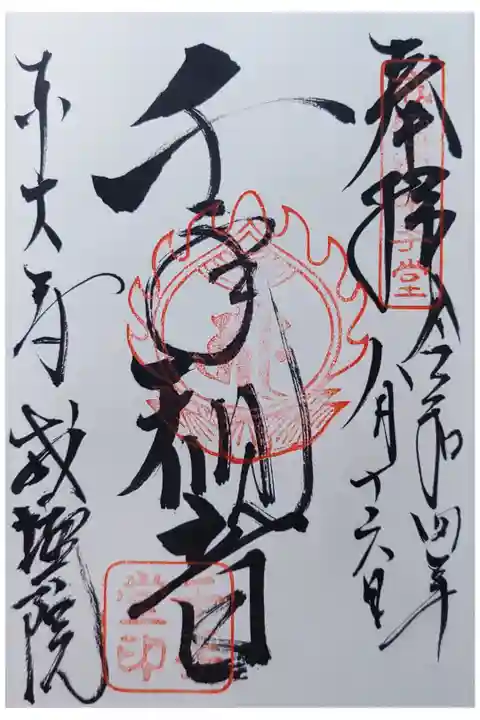 奉拝 令和四年
八月十六日
千手観音
東大寺 戒壇院
千手堂印